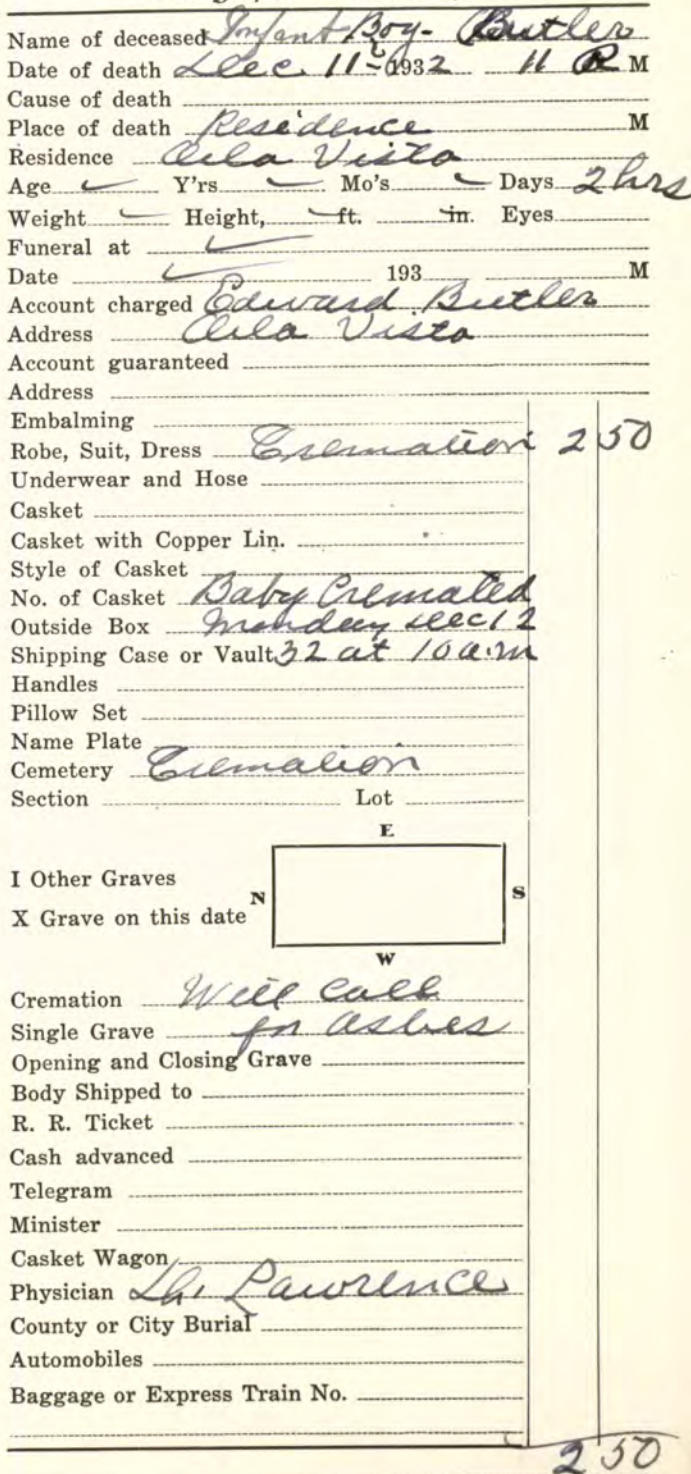 Name of deceased Infant Boy - Butler
Date of death Dec 11 - 1932 11 P M
Cause of death
Place of death Residence M
Residence Vista
Age Y'rs Mo's Days 2 hrs
Weight Height, ft. in. Eyes
Funeral at
Date 193 M
Account charged Edward Butler
Address Vista
Account guaranteed
Address
Embalming
Robe, Suit, Dress Cremation 2 50
Underwear and Hose
Casket
Casket with Copper Lin.
Style of Casket
No. of Casket Baby Cremated
Outside Box Monday Dec 12
Shipping Case or Vault 32 at 10 a.m
Handles
Pillow Set
Name Plate
Cemetery Cremation
Section Lot
E
I Other Graves
N S
X Grave on this date
W
Cremation Will Call
Single Grave for Ashes
Opening and Closing Grave
Body Shipped to
R. R. Ticket
Cash advanced
Telegram
Minister
Casket Wagon
Physician Dr. Lawrence
County or City Burial
Automobiles
Baggage or Express Train No.
2 50